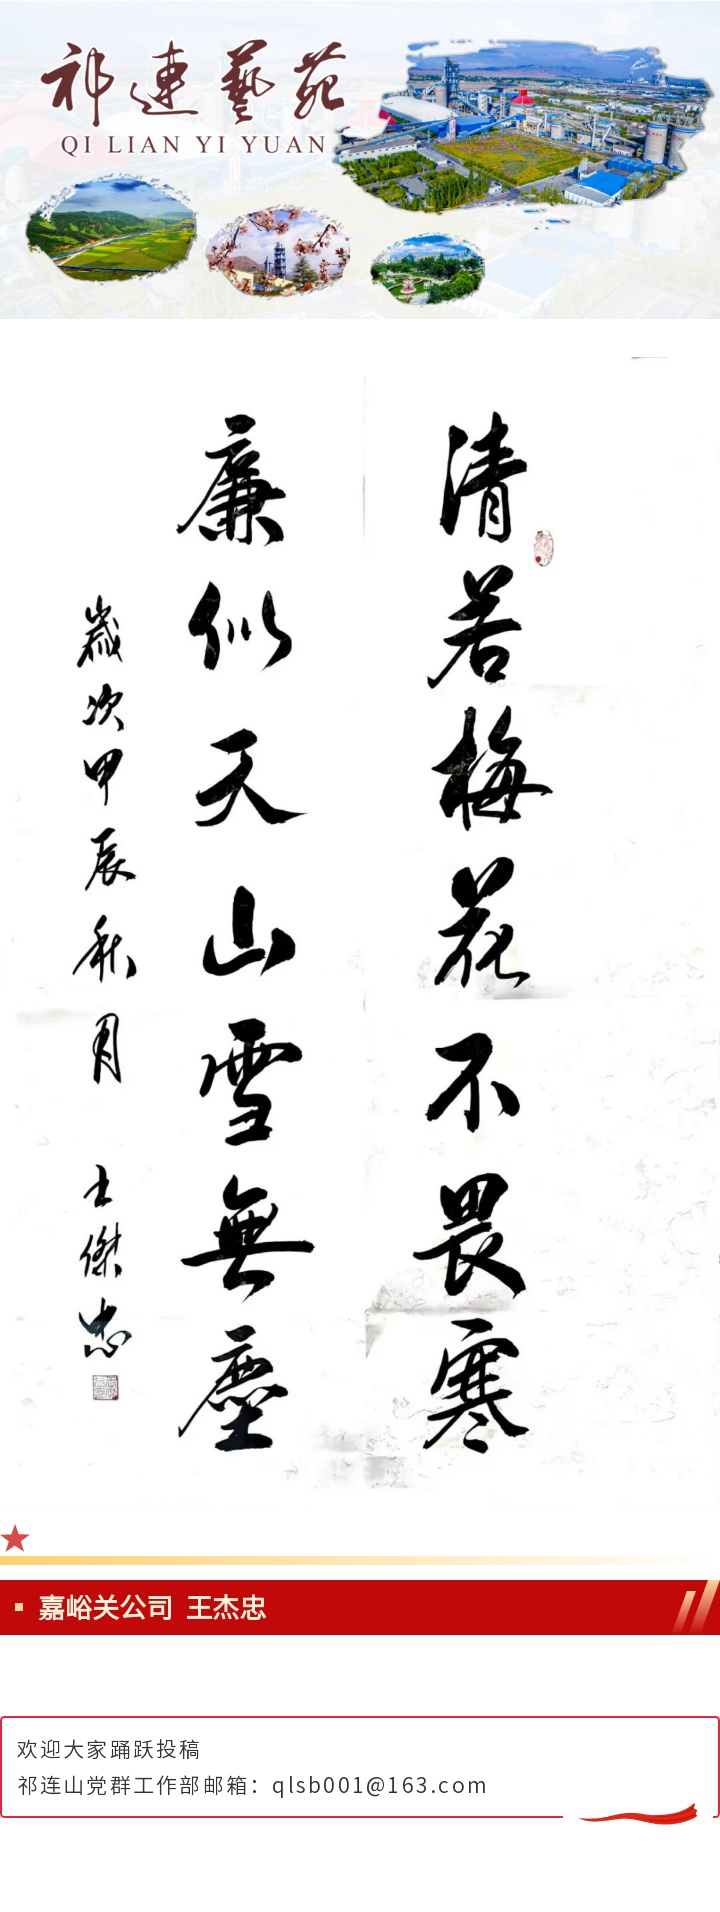 祁連藝苑
QI LIAN YI YUAN
清若梅花不畏寒
廉似天山雪無塵
歲次甲辰秋月 王傑忠
嘉峪关公司 王杰忠
欢迎大家踊跃投稿
祁连山党群工作部邮箱：qlsb001@163.com